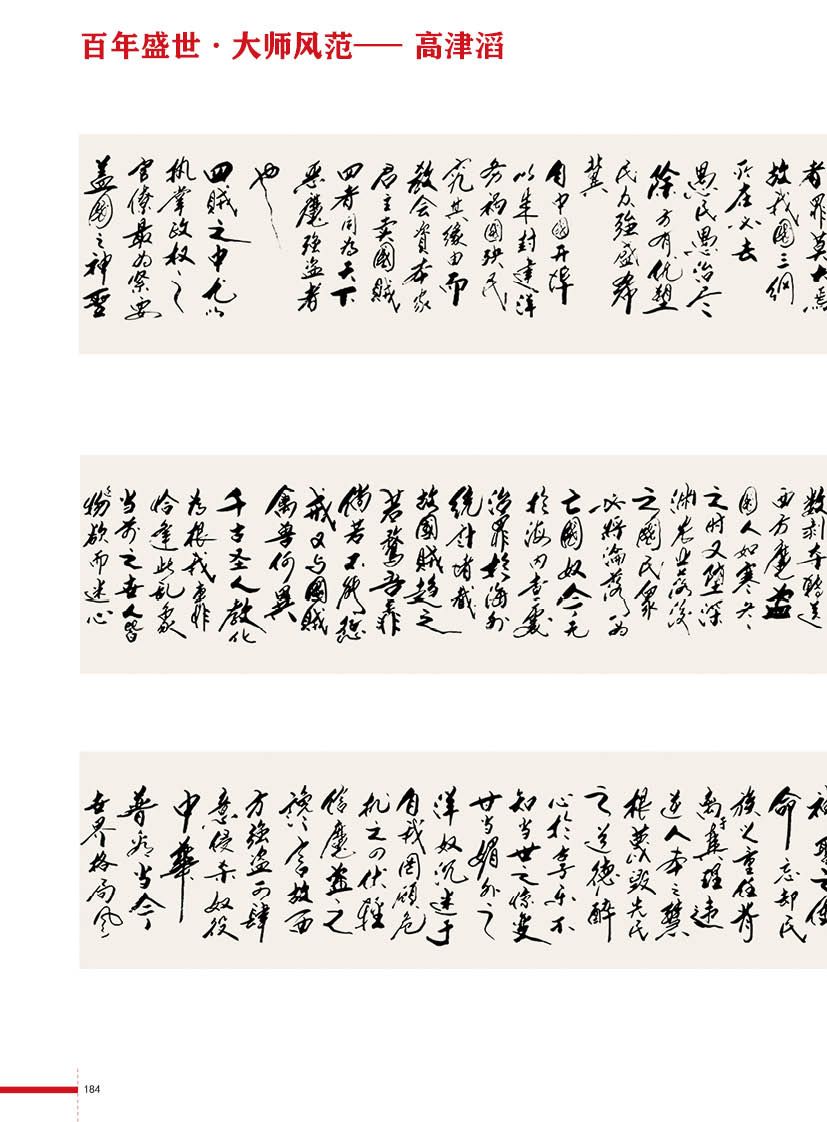 百年盛世·大师风范—— 高津滔
者罪莫大焉
故我国三纲
所在必去
愚民愚治尽亡
除方有优塑
民众强盛希
冀
自中国开埠
以来封建洋
务祸国殃民
究其缘由而
教会资本家
君主卖国贼
四者同为天下
恶魔强盗者
也
四贼之中尤以
执掌政权之
官僚最为紧要
盖国之神圣
数剥夺转送
西方魔盗
国人如寒冬
之时又堕深
渊老世落后
之国民众
必将沦落为
亡国奴今无
于海内查处
治罪于海外
统计堵截
故国贼趋之
若鹜吾辈
倘若不能惩
戒又与国贼
禽兽何异
千古圣人教化
为根我辈非
恰逢此乱象
当前之世人皆
物欲而迷心
命忘却民
族之重任背
离于真理违
逆人本之
根基毁先民
之道德醉
心于享乐不
知当世之惊变
甘当媚外之
洋奴沉迷于
自我罔顾危
机之四伏轻
信魔盗之
谗言故西
方强盗可肆
意侵杀奴役
中华
普看当今
世界格局风
184